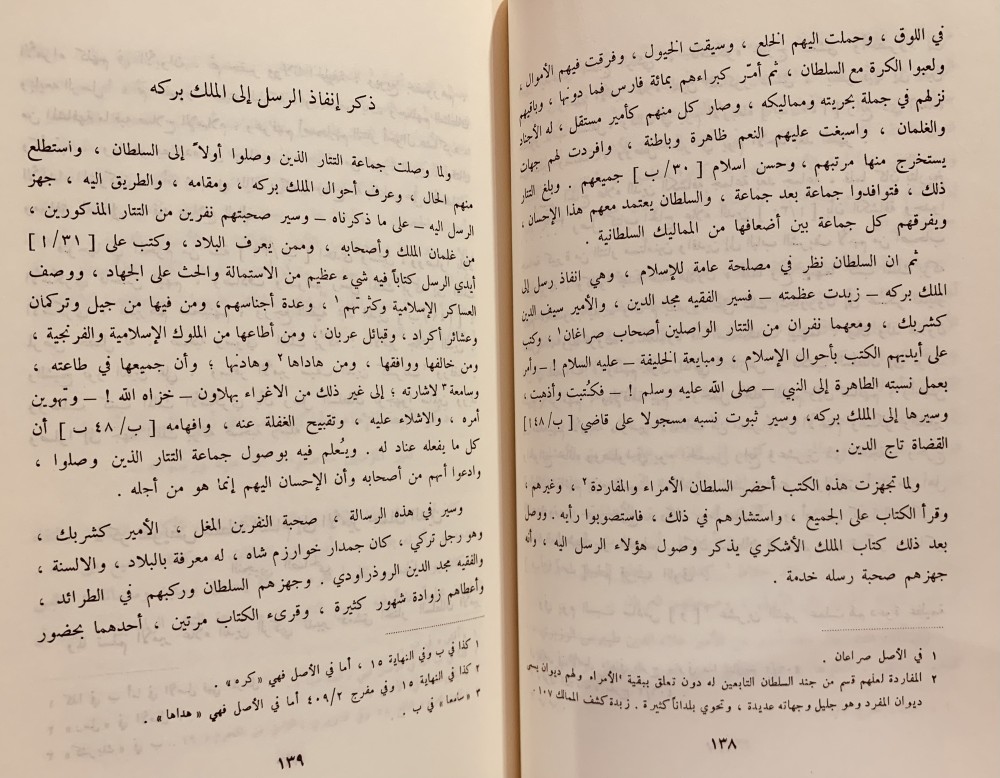 في اللوق ، وحملت اليهم الخلع ، وسيقت الخيول ، وفرقت فيهم الأموال ،
ولعبوا الكرة مع السلطان ، ثم أمّر كبراءهم بمائة فارس فما دونها ، وباقيهم
نزلهم في جملة بحريته ومماليكه ، وصار كل منهم كأمير مستقل ، له الأجناد
والغلمان ، واسبغت عليهم النعم ظاهرة وباطنة ، وافردت لهم جهات
يستخرج منها مرتبهم ، وحسن اسلام [ ٣٠/ب ] جميعهم . وبلغ التتار
ذلك ، فتوافدوا جماعة بعد جماعة ، والسلطان يعتمد معهم هذا الإحسان ،
ويفرقهم كل جماعة بين أضعافها من المماليك السلطانية .
ثم ان السلطان نظر في مصلحة عامة للإسلام ، وهي انفاذ رسل إلى
الملك بركه – زيدت عظمته – فسير الفقيه مجد الدين ، والأمير سيف الدين
كشربك ، ومعهما نفران من التتار الواصلين أصحاب صراغان١ ، وكتب
على أيديهم الكتب بأحوال الإسلام ، ومبايعة الخليفة – عليه السلام ! – وأمر
بعمل نسبته الطاهرة إلى النبي – صلى الله عليه وسلم ! – فكُتبت وأذهبت ،
وسيرها إلى الملك بركه، وسير ثبوت نسبه مسجولا على قاضي [ ب/١٤٨]
القضاة تاج الدين .
ولما تجهزت هذه الكتب أحضر السلطان الأمراء والمفاردة٢ ، وغيرهم ،
وقرأ الكتاب على الجميع ، واستشارهم في ذلك ، فاستصوبوا رأيه . ووصل
بعد ذلك كتاب الملك الأشكري يذكر وصول هؤلاء الرسل اليه ، وأنه
جهزهم صحبة رسله خدمة .
١ في الأصل صراعان .
٢ المفاردة لعلهم قسم من جند السلطان التابعين له دون تعلق ببقية «الأمراء ولهم ديوان يسمى
ديوان المفرد وهو جليل وجهاته عديدة ، وتحوي بلداناً كثيرة . زبدة كشف الممالك ١٠٧
١٣٨
ذكر إنفاذ الرسل إلى الملك بركه
ولما وصلت جماعة التتار الذين وصلوا أولاً إلى السلطان ، واستطلع
منهم الحال ، وعرف أحوال الملك بركه ، ومقامه ، والطريق اليه ، جهز
الرسل اليه – على ما ذكرناه – وسير صحبتهم نفرين من التتار المذكورين ،
من غلمان الملك وأصحابه ، وممن يعرف البلاد ، وكتب على [ ٣١/أ ]
أيدي الرسل كتاباً فيه شيء عظيم من الاستمالة والحث على الجهاد ، ووصف
العساكر الإسلامية وكثرتهم١ ، وعدة أجناسهم، ومن فيها من جيل وتركمان
وعشائر أكراد ، وقبائل عربان ، ومن أطاعها من الملوك الإسلامية والفرنجية ،
ومن خالفها ووافقها ، ومن هاداها٢ وهادنها ؛ وأن جميعها في طاعته ،
وسامعة٣ لاشارته ؛ إلى غير ذلك من الاغراء بهلاون – خزاه الله ! – وتهوين
أمره ، والاشلاء عليه ، وتقبيح الغفلة عنه ، وافهامه [ ب/٤٨ ب ] أن
كل ما يفعله عناد له . ويُعلم فيه بوصول جماعة التتار الذين وصلوا ،
وادعوا أنهم من أصحابه وأن الإحسان اليهم إنما هو من أجله .
وسير في هذه الرسالة ، صحبة النفرين المغل ، الأمير كشربك ،
وهو رجل تركي ، كان جمدار خوارزم شاه ، له معرفة بالبلاد ، والالسنة ،
والفقيه مجد الدين الروذراودي . وجهزهم السلطان وركبهم في الطرائد ،
وأعطاهم زوادة شهور كثيرة ، وقرىء الكتاب مرتين ، أحدهما بحضور
١ كذا في ب وفي النهاية ١٥ ، أما في الأصل فهي «كره» .
٢ كذا في النهاية ١٥ وفي مفرج ٤٠٩/٢ أما في الأصل فهي « هداها » .
٣ «سامعا» في ب .
١٣٩